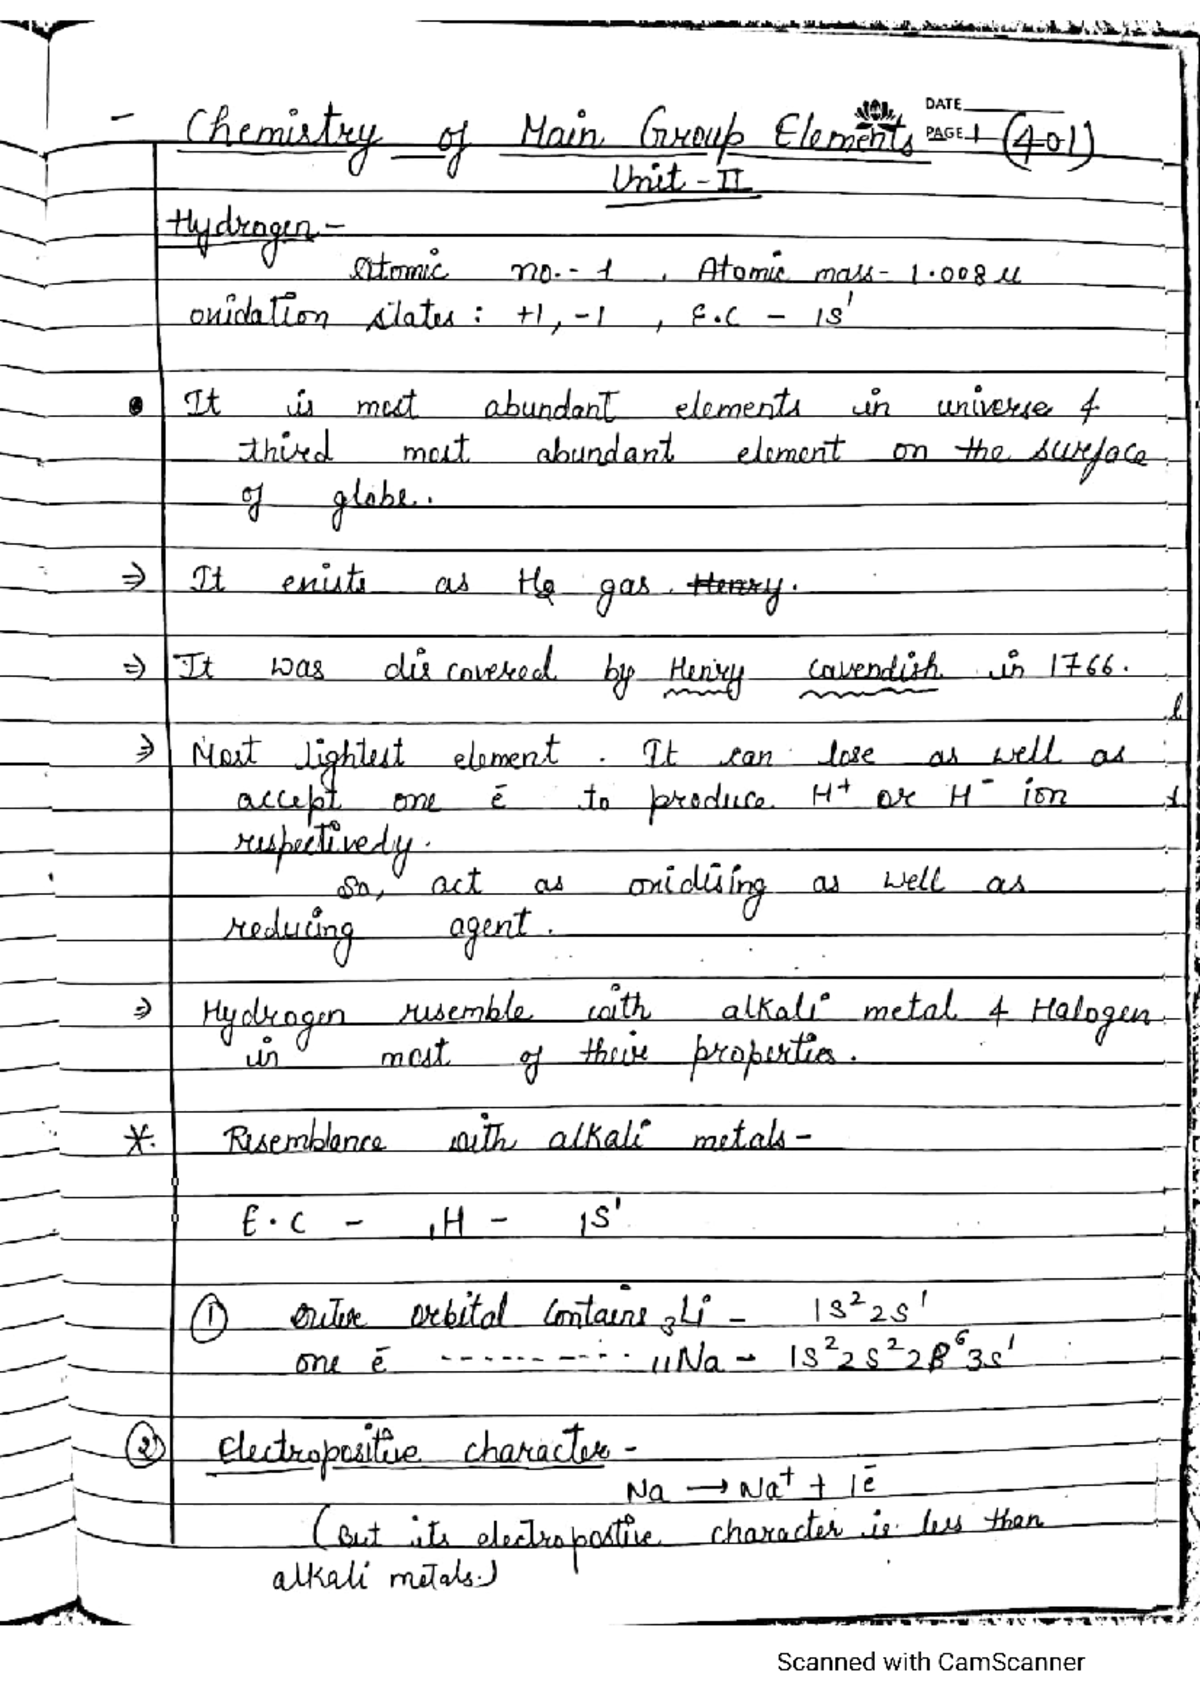 DATE
- Chemistry of Main Group Elements PAGE 1 (401)
Unit - II
Hydrogen -
Atomic no. - 1 , Atomic mass - 1.008 u
oxidation states : +1, -1 , E.C - 1S¹
• It is most abundant elements in universe &
third most abundant element on the surface
of globe.
⇒ It exists as H₂ gas. Henry.
⇒ It was discovered by Henry Cavendish in 1766.
⇒ Most lightest element . It can lose as well as
accept one ē to produce H⁺ or H⁻ ion
respectively.
So, act as oxidising as well as
reducing agent.
⇒ Hydrogen resemble with alkali metal & Halogen
in most of their properties.
* Resemblance with alkali metals -
E.C - ₁H - 1S¹
① Outer orbital contains ₃Li - 1S²2S¹
one ē --------- ₁₁Na - 1S²2S²2P⁶3S¹
② Electropositive character -
Na → Na⁺ + 1ē
(But its electropostive character is less than
alkali metals.)
Scanned with CamScanner